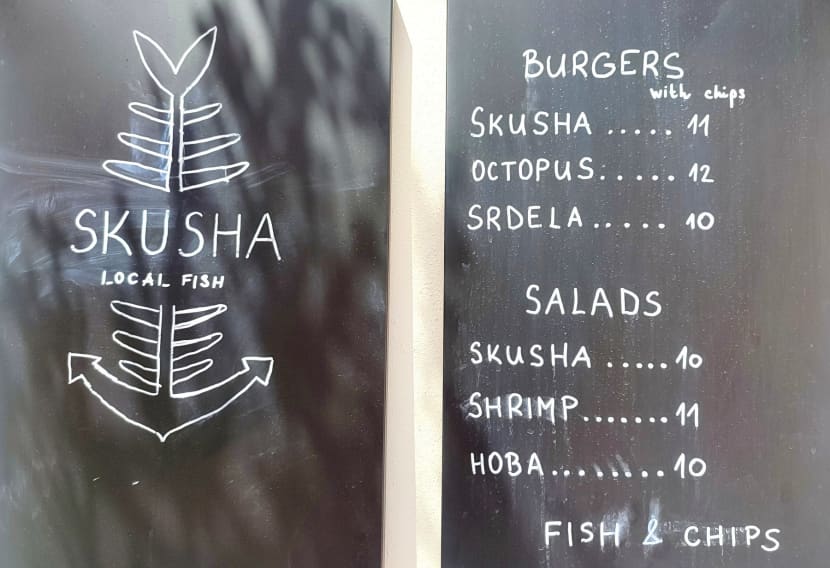 SKUSHA
LOCAL FISH
BURGERS
with chips
SKUSHA ..... 11
OCTOPUS...... 12
SRDELA...... 10
SALADS
SKUSHA .....10
SHRIMP.......11
HOBA.........10
FISH & CHIPS